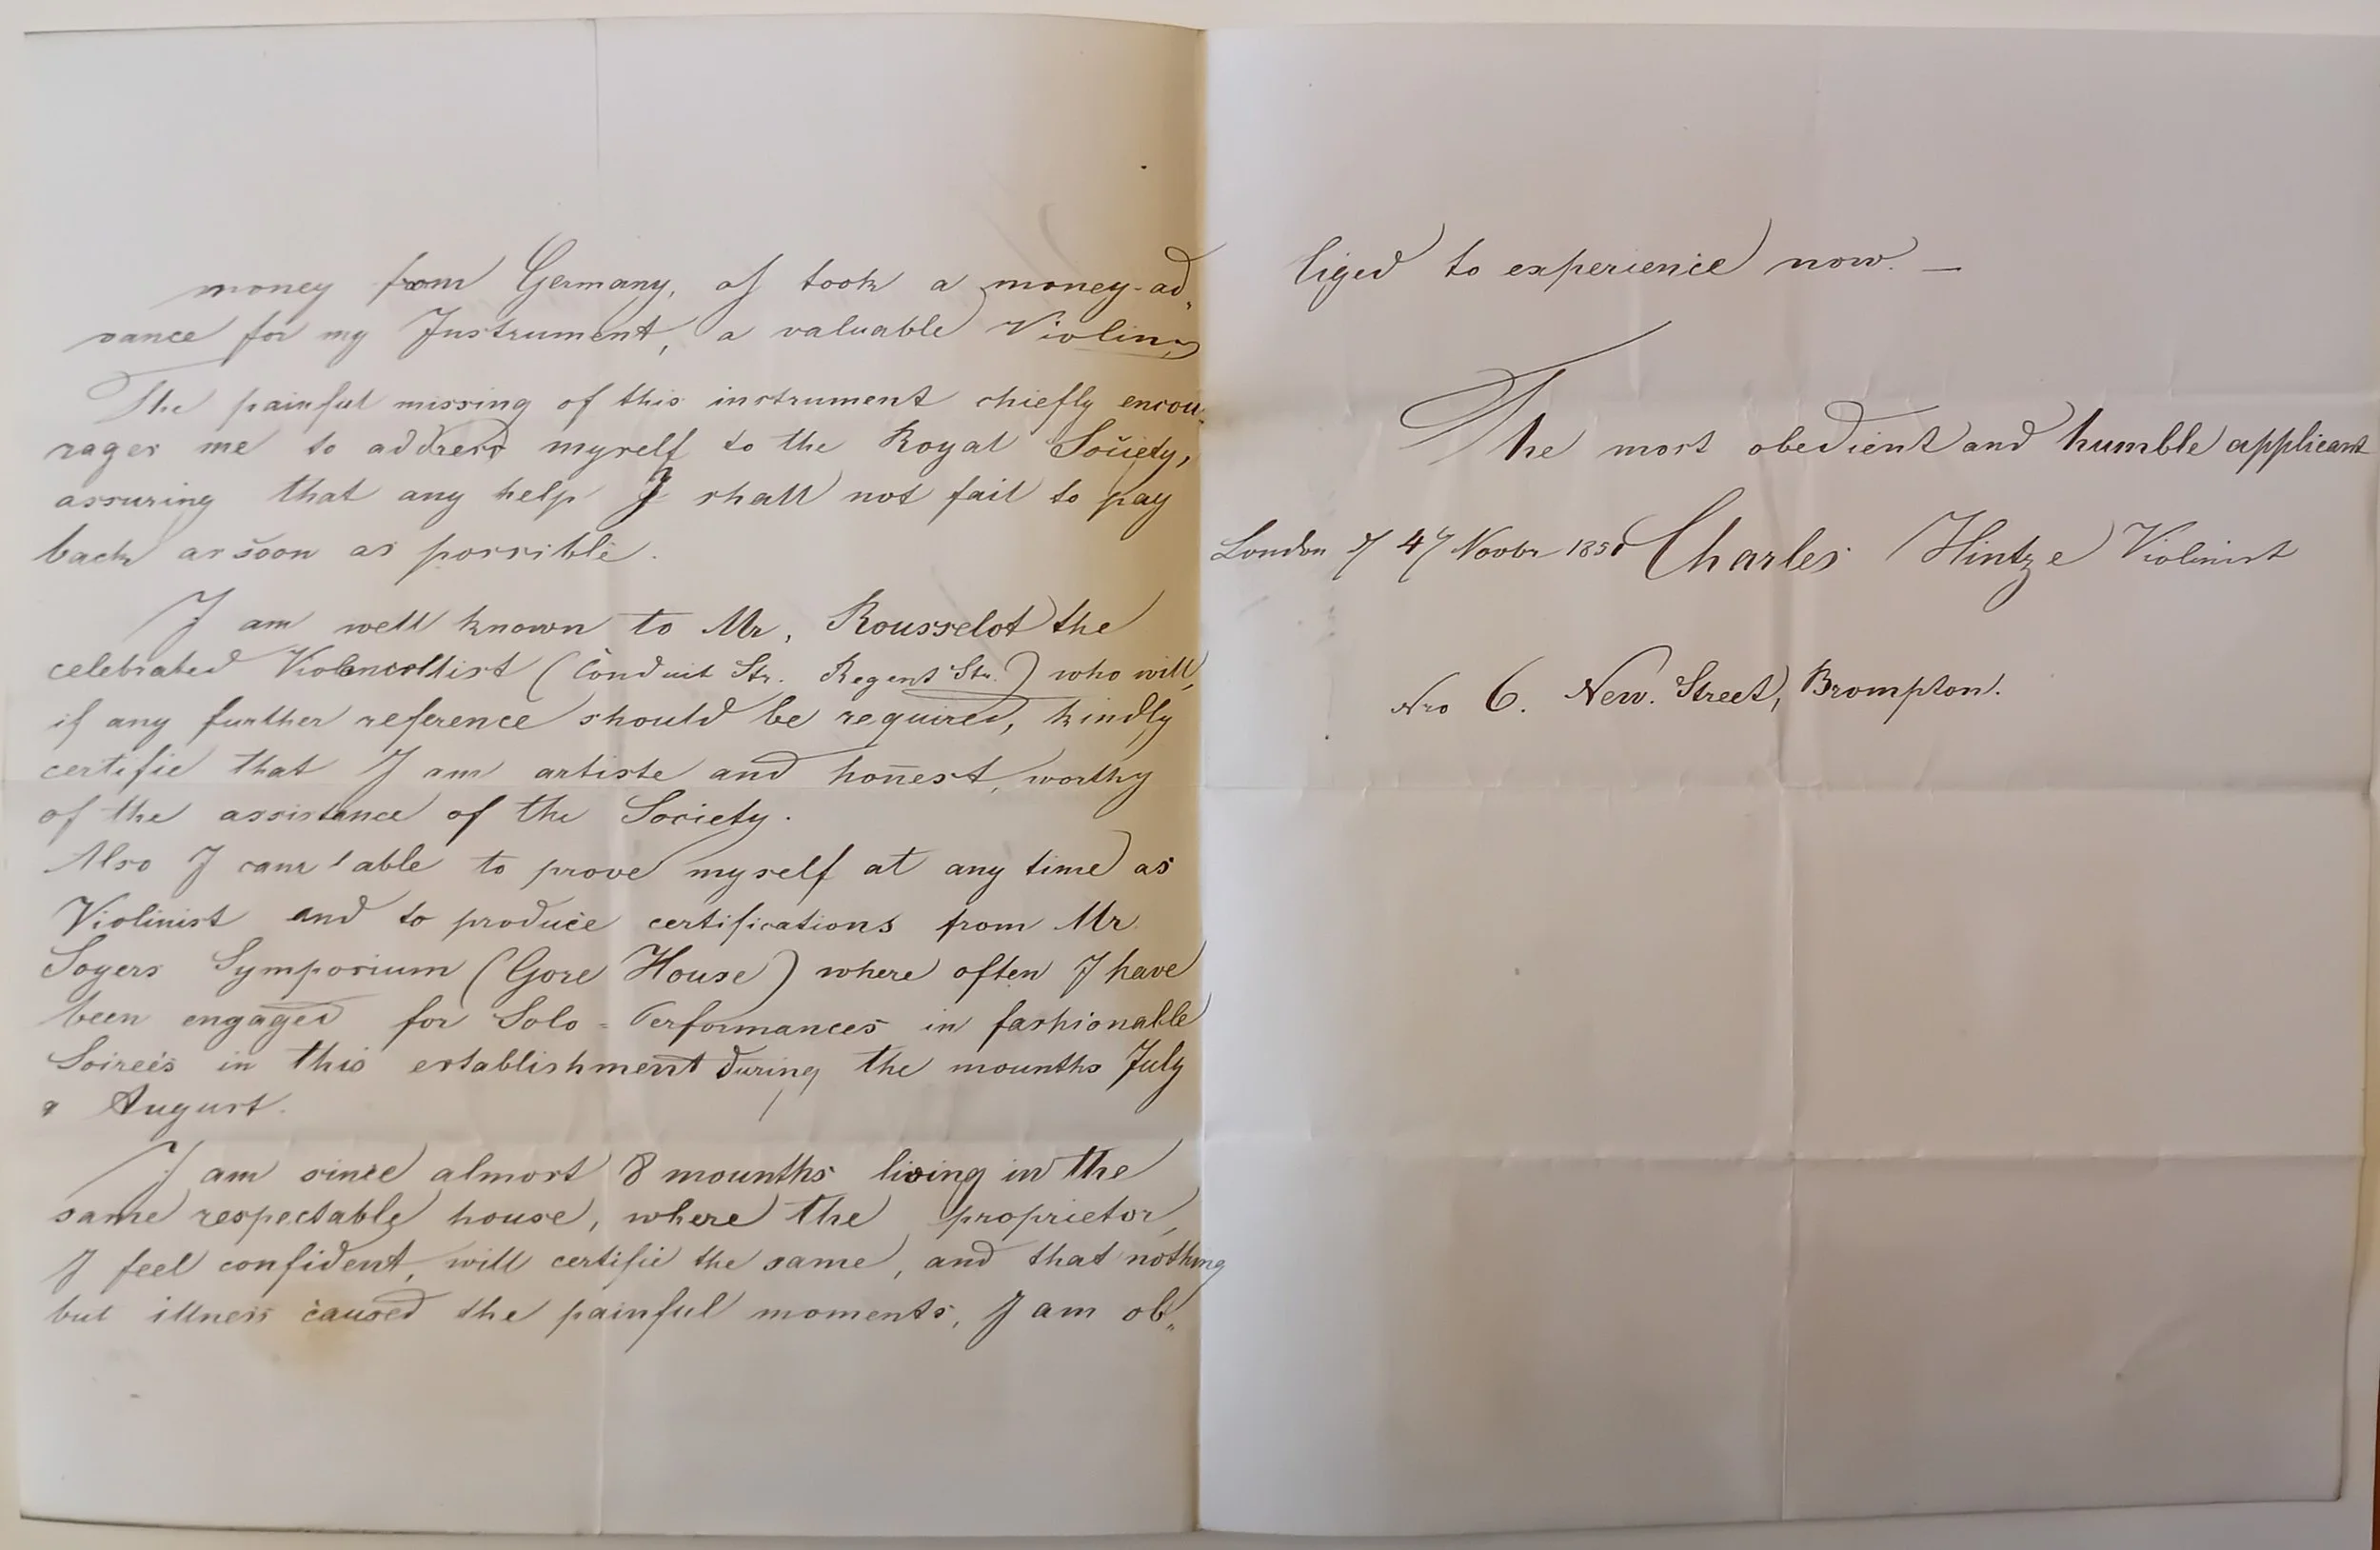 money from Germany, I took a money-ad„
vance for my Instrument, a valuable Violin,
The painful missing of this instrument chiefly encou„
rages me to address myself to the Royal Society,
assuring that any help I shall not fail to pay
back as soon as possible.
I am well known to Mr. Rousselot the
celebrated Violencellist (Conduit Str. Regent Str.) who will,
if any further reference should be required, kindly
certifie that I am artiste and honest, worthy
of the assistance of the Society.
Also I am able to prove myself at any time as
Violinist and to produce certifications from Mr
Soyers Symposium (Gore House) where often I have
been engaged for Solo = Performances in fashionable
Soireés in this establishment during the mounths July
& August.
I am since almost 8 mounths living in the
same respectable house, where the proprietor,
I feel confident, will certifie the same, and that nothing
but illness caused the painful moments, I am ob„
liged to experience now. —
The most obedient and humble applicant
London 4 Novbr Charles Hintze Violinist
Nro 6. New. Street, Brompton.